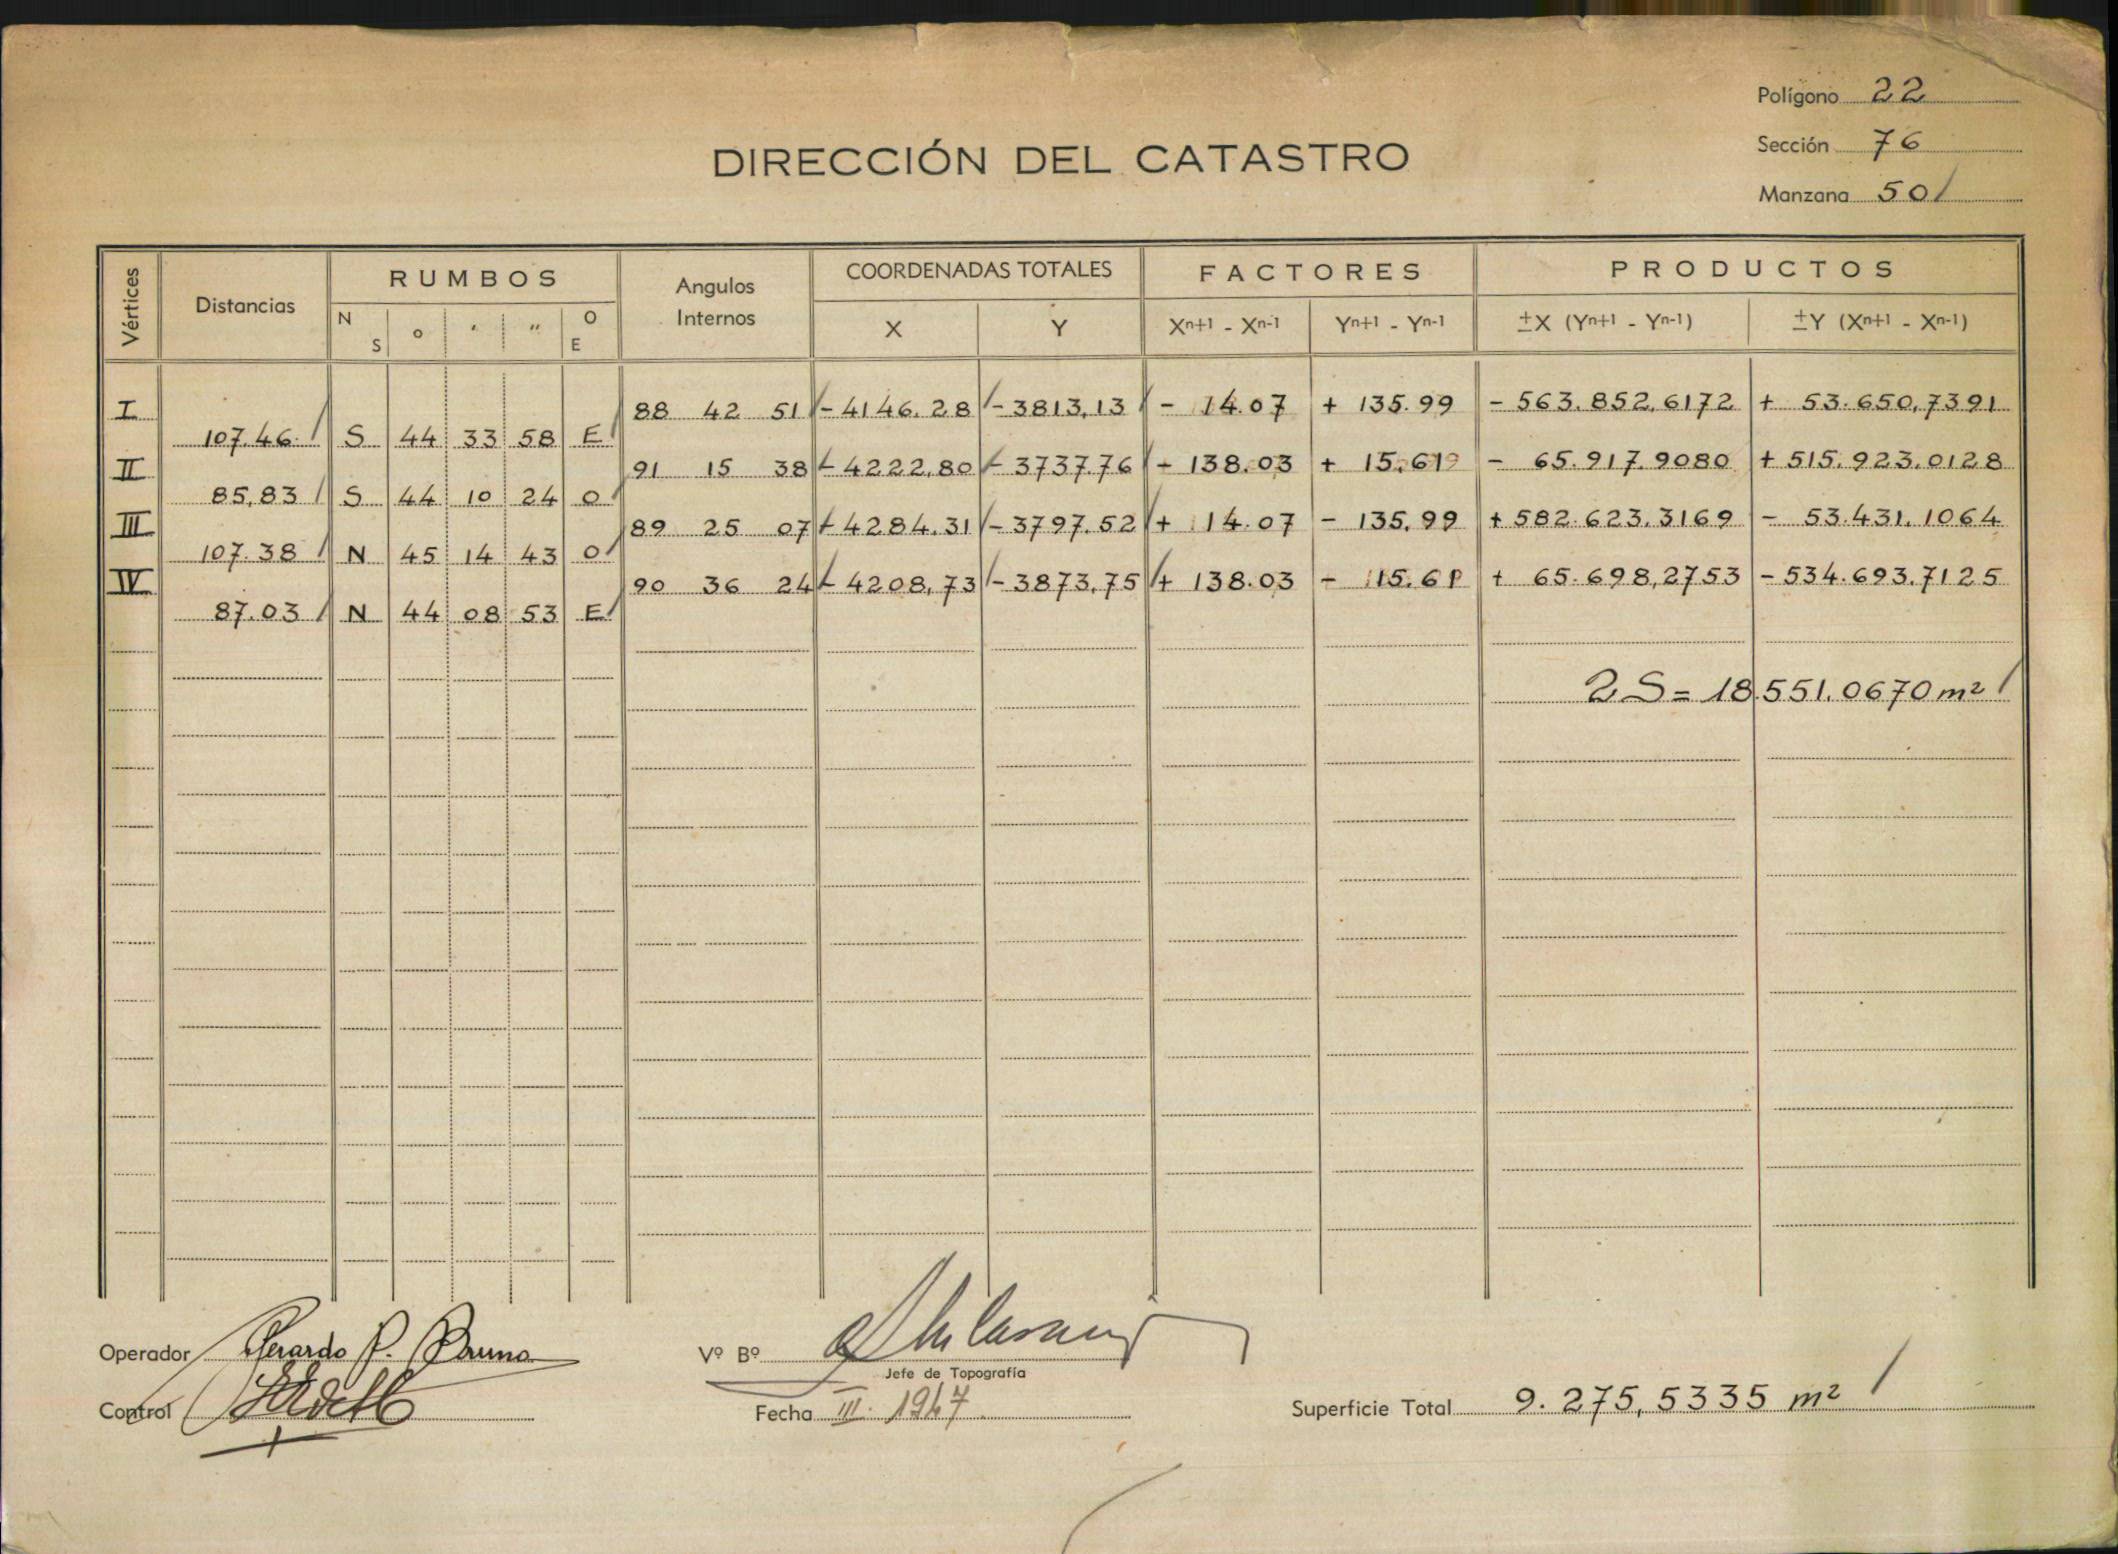 Polígono 22
Sección 76
DIRECCIÓN DEL CATASTRO
Manzana 50
Vértices Distancias RUMBOS Angulos Internos COORDENADAS TOTALES FACTORES PRODUCTOS
N S ° ' " O E X Y Xn+1 - Xn-1 Yn+1 - Yn-1 ±X (Yn+1 - Yn-1) ±Y (Xn+1 - Xn-1)
I 88 42 51 - 4146.28 - 3813,13 - 14.07 + 135.99 - 563.852,6172 + 53.650,7391
107.46 S 44 33 58 E
II 91 15 38 - 4222,80 - 3737.76 - 138.03 + 15.61 - 65.917.9080 + 515.923.0128
85,83 S 44 10 24 O
III 89 25 07 - 4284.31 - 3797.52 + 14.07 - 135,99 + 582.623.3169 - 53.431.1064
107.38 N 45 14 43 O
IV 90 36 24 - 4208,73 - 3873,75 + 138.03 - 15.61 + 65.698,2753 - 534.693.7125
87.03 N 44 08 53 E
2S = 18.551.0670 m²
Operador Gerardo P. Bruno
Vº Bº
Jefe de Topografía
Control
Fecha III. 1947
Superficie Total 9.275,5335 m²